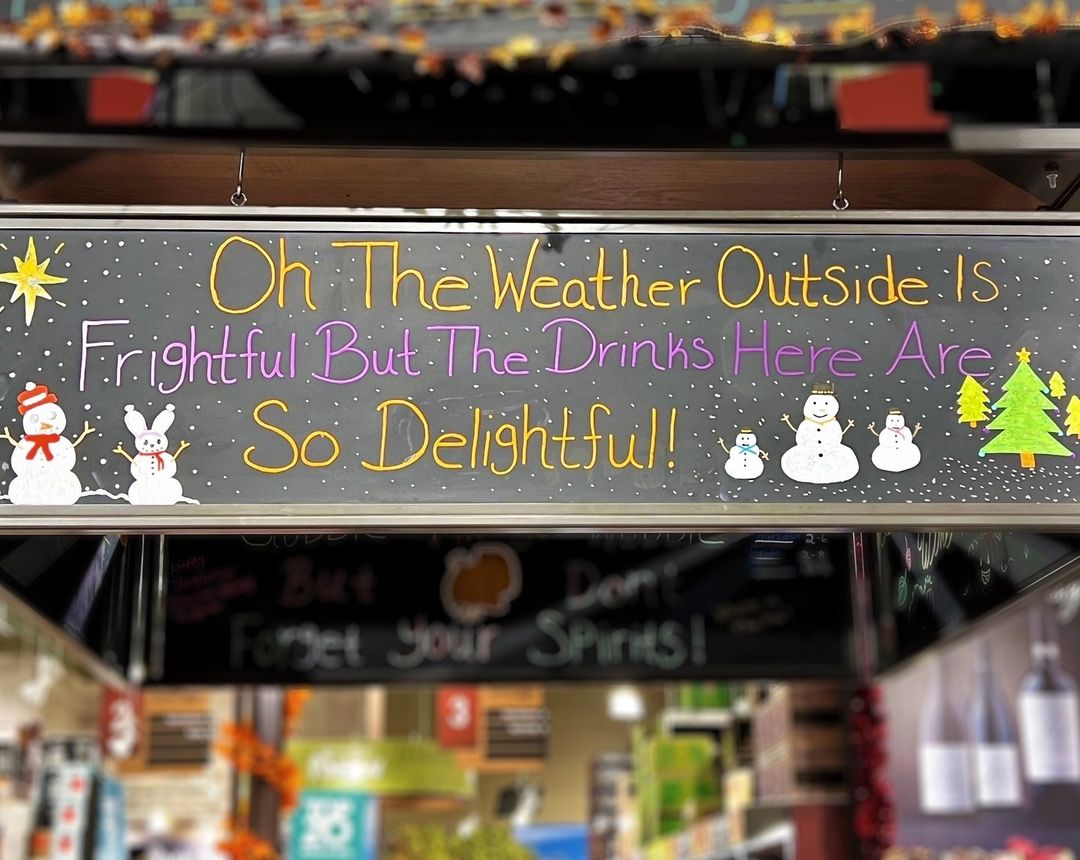 Oh The Weather Outside Is
Frightful But The Drinks Here Are
So Delightful!
But Don't
Forget your Spirits!
3
3